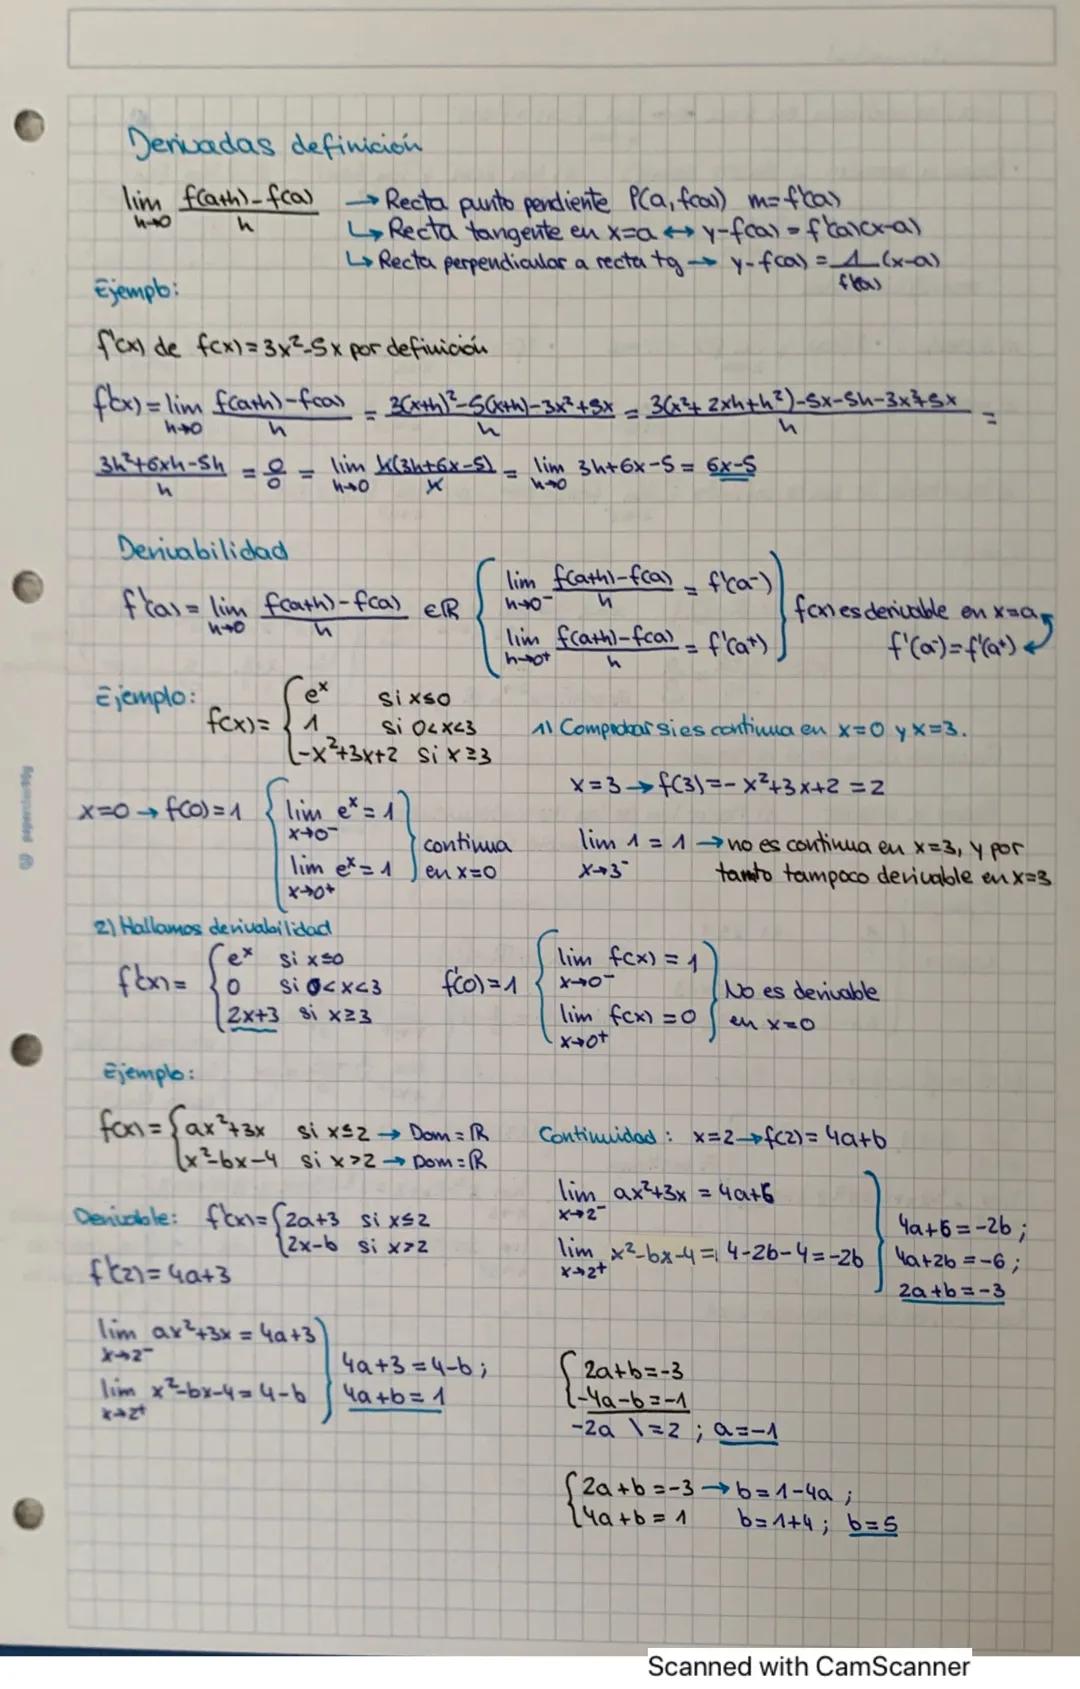 Derivadas definición
lim h→0 (f(a+h)-f(a))/h → Recta punto pendiente P(a, f(a)) m=f'(a)
↳ Recta tangente en x=a ↔ y-f(a) = f'(a)(x-a)
↳ Recta perpendicular a recta tg → y-f(a) = 1/f'(a) (x-a)
Ejemplo:
f'(x) de f(x)=3x²-5x por definición
f'(x) = lim h→0 (f(a+h)-f(a))/h = (3(x+h)²-5(x+h)-3x²+5x)/h = (3(x²+2xh+h²)-5x-5h-3x²+5x)/h =
(3h²+6xh-5h)/h = 0/0 = lim h→0 h(3h+6x-5)/h = lim h→0 3h+6x-5 = 6x-5
Derivabilidad
f'(a) = lim h→0 (f(a+h)-f(a))/h ∈ℝ { lim h→0⁻ (f(a+h)-f(a))/h = f'(a⁻)
lim h→0⁺ (f(a+h)-f(a))/h = f'(a⁺) } f(x) es derivable en x=a
f'(a⁻)=f'(a⁺)
Ejemplo:
f(x)= { eˣ si x≤0
1 si 0<x<3
-x²+3x+2 si x≥3
1) Comprobar si es continua en x=0 y x=3.
x=3 → f(3)=-x²+3x+2 = 2
x=0 → f(0)=1 { lim x→0⁻ eˣ = 1
lim x→0⁺ eˣ = 1 } continua en x=0
lim x→3⁻ 1 = 1 → no es continua en x=3, y por
tanto tampoco derivable en x=3
2) Hallamos derivabilidad
f'(x)= { eˣ si x≤0
0 si 0<x<3
2x+3 si x≥3
f'(0)=1 { lim x→0⁻ f(x) = 1
lim x→0⁺ f(x) = 0 } No es derivable
en x=0
Ejemplo:
f(x) = { ax²+3x si x≤2 → Dom = ℝ
x²-bx-4 si x>2 → Dom = ℝ
Continuidad: x=2 → f(2)= 4a+b
lim x→2⁻ ax²+3x = 4a+6
lim x→2⁺ x²-bx-4 = 4-2b-4=-2b
4a+6=-2b;
4a+2b=-6;
2a+b=-3
Derivable: f'(x)= { 2a+3 si x≤2
2x-b si x>2
f'(2)=4a+3
lim x→2⁻ ax²+3x = 4a+3
lim x→2⁺ x²-bx-4=4-b
4a+3=4-b;
4a+b=1
{ 2a+b=-3
-4a-b=-1
-2a \=2; a=-1
{ 2a+b=-3 → b=1-4a;
4a+b=1 b=1+4; b=5
Scanned with CamScanner